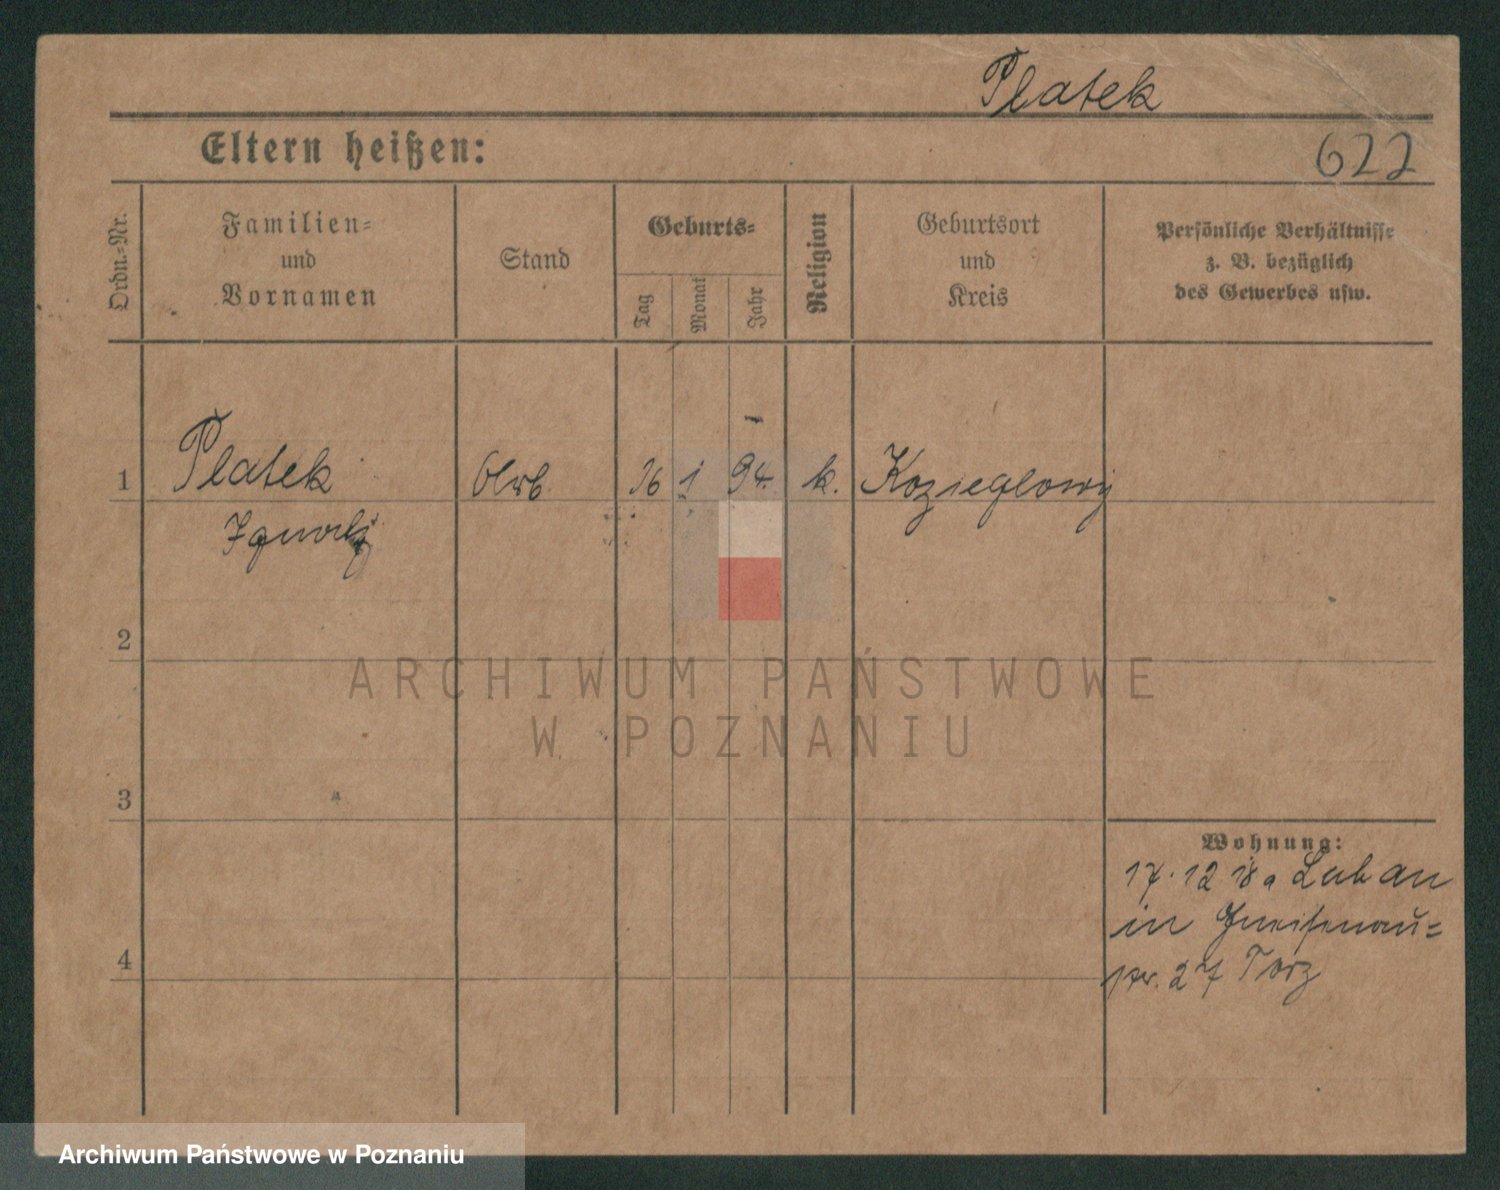 Platek
Eltern heißen:
622
Ordn.-Nr.
Familien-
und
Vornamen
Stand
Geburts-
Tag
Monat
Jahr
Religion
Geburtsort
und
Kreis
Persönliche Verhältnisse
z. B. bezüglich
des Gewerbes usw.
1
Platek
26 1 94.
k.
Kozieglowy
2
ARCHIWUM PAŃSTWOWE
W POZNANIU
3
Wohnung:
17. 12 18 a Luban
in Gneisenau=
str. 27 Torz
4
Archiwum Państwowe w Poznaniu